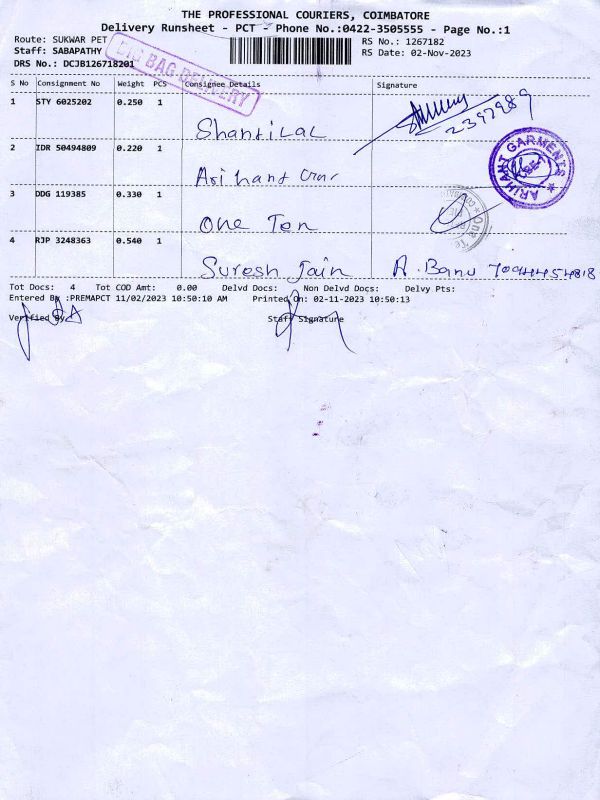 THE PROFESSIONAL COURIERS, COIMBATORE
Delivery Runsheet - PCT - Phone No.:0422-3505555 - Page No.:1
Route: SUKWAR PET
RS No.: 1267182
Staff: SABAPATHY
RS Date: 02-Nov-2023
DRS No.: DCJB126718201
BAG DELIVERY
S No Consignment No Weight PCS Consignee Details Signature
1 STY 6025202 0.250 1
Shantilal 2392989
2 IDR 50494809 0.220 1
Arihant
ARIHANT GARMENTS
3 DDG 119385 0.330 1
One Ten
One Te
4 RJP 3248363 0.540 1
Suresh Jain A. Banu
Tot Docs: 4 Tot COD Amt: 0.00 Delvd Docs: Non Delvd Docs: Delvy Pts:
Entered By :PREMAPCT 11/02/2023 10:50:10 AM Printed On: 02-11-2023 10:50:13
Verified By Staff Signature